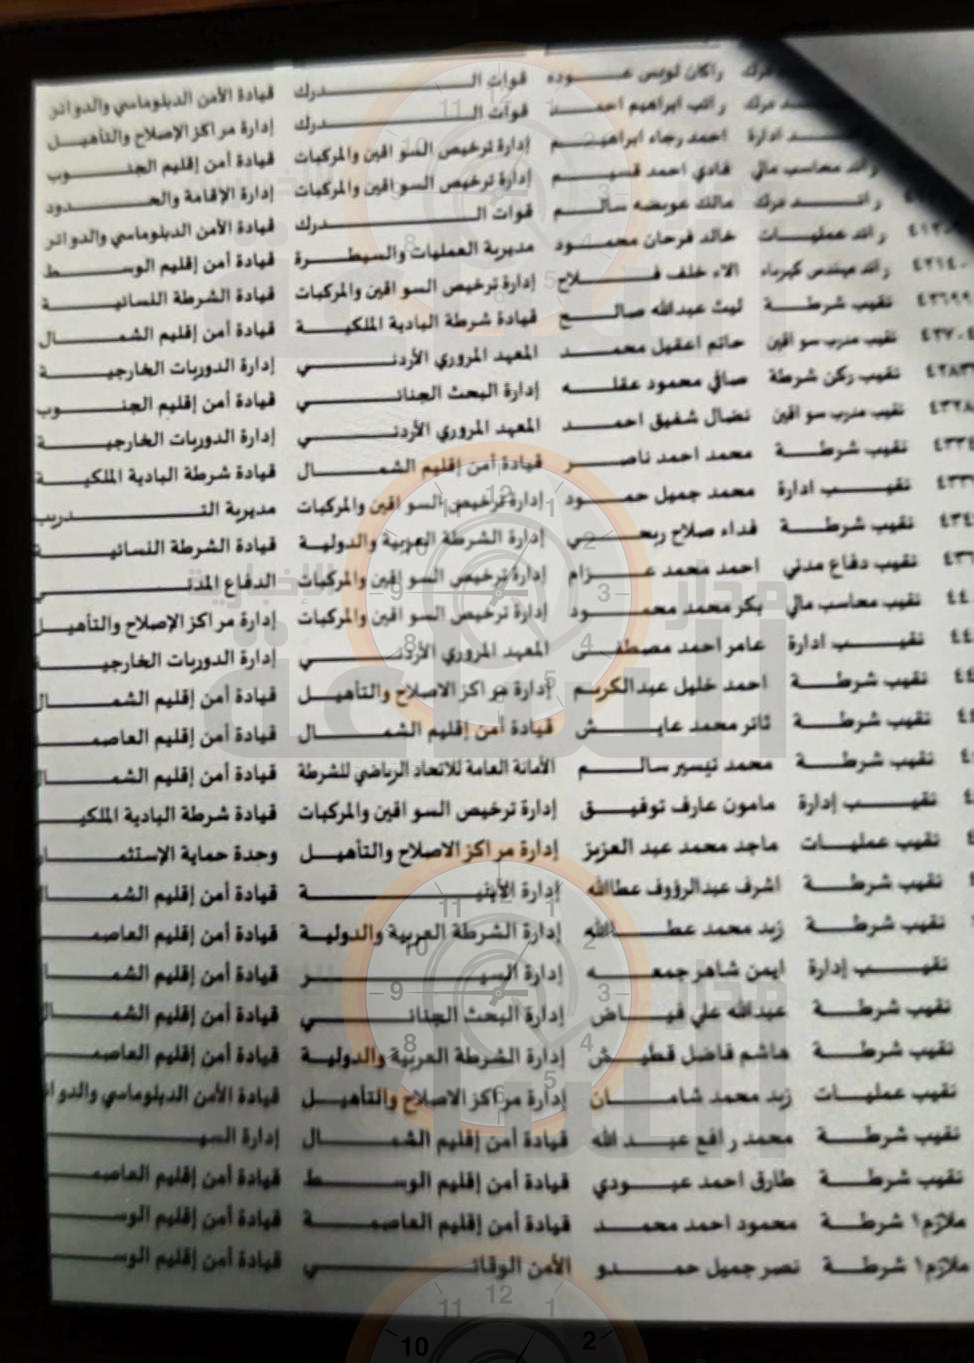 درك راكان لويس عوده قوات الدرك قيادة الأمن الدبلوماسي والدوائر
درك راتب ابراهيم احمد قوات الدرك إدارة مراكز الإصلاح والتأهيل
ادارة احمد رجاء ابراهيم إدارة ترخيص السواقين والمركبات قيادة أمن إقليم الجنوب
رائد محاسب مالي فادي احمد قسيم إدارة ترخيص السواقين والمركبات إدارة الإقامة والحدود
رائد درك مالك عويضه سالم قوات الدرك قيادة الأمن الدبلوماسي والدوائر
رائد عمليات خالد فرحان محمود مديرية العمليات والسيطرة قيادة أمن إقليم الوسط
رائد مهندس كهرباء الاء خلف فلاح إدارة ترخيص السواقين والمركبات قيادة الشرطة النسائية
نقيب شرطة ليث عبدالله صالح قيادة شرطة البادية الملكية قيادة أمن إقليم الشمال
نقيب مدرب سواقين حاتم اعقيل محمد المعهد المروري الأردني إدارة الدوريات الخارجية
نقيب ركن شرطة صافي محمود عقله إدارة البحث الجنائي قيادة أمن إقليم الجنوب
نقيب مدرب سواقين نضال شفيق احمد المعهد المروري الأردني إدارة الدوريات الخارجية
نقيب شرطة محمد احمد ناصر قيادة أمن إقليم الشمال قيادة شرطة البادية الملكية
نقيب ادارة محمد جميل حمود إدارة ترخيص السواقين والمركبات مديرية التدريب
نقيب شرطة فداء صلاح ربحي إدارة الشرطة العربية والدولية قيادة الشرطة النسائية
نقيب دفاع مدني احمد محمد عزام إدارة ترخيص السواقين والمركبات الدفاع المدني
نقيب محاسب مالي بكر محمد محمود إدارة ترخيص السواقين والمركبات إدارة مراكز الإصلاح والتأهيل
نقيب ادارة عامر احمد مصطفى المعهد المروري الأردني إدارة الدوريات الخارجية
نقيب شرطة احمد خليل عبدالكريم إدارة مراكز الاصلاح والتأهيل قيادة أمن إقليم الشمال
نقيب شرطة ثائر محمد عايش قيادة أمن إقليم الشمال قيادة أمن إقليم العاصم
نقيب شرطة محمد تيسير سالم الأمانة العامة للاتحاد الرياضي للشرطة قيادة أمن إقليم الشمال
نقيب إدارة مامون عارف توفيق إدارة ترخيص السواقين والمركبات قيادة شرطة البادية الملكي
نقيب عمليات ماجد محمد عبد العزيز إدارة مراكز الاصلاح والتأهيل وحدة حماية الإستثما
نقيب شرطة اشرف عبدالرؤوف عطاالله إدارة الأبنية قيادة أمن إقليم الشمال
نقيب شرطة زيد محمد عطالله إدارة الشرطة العربية والدولية قيادة أمن إقليم العاصم
نقيب إدارة ايمن شاهر جمعه إدارة السير قيادة أمن إقليم الشما
نقيب شرطة عبدالله علي فياض إدارة البحث الجنائي قيادة أمن إقليم الشمال
نقيب شرطة هاشم فاضل قطيش إدارة الشرطة العربية والدولية قيادة أمن إقليم العاصم
نقيب عمليات زيد محمد شامان إدارة مراكز الاصلاح والتأهيل قيادة الأمن الدبلوماسي والدوا
نقيب شرطة محمد رافع عبد الله قيادة أمن إقليم الشمال إدارة السي
نقيب شرطة طارق احمد عبودي قيادة أمن إقليم الوسط قيادة أمن إقليم العاصم
ملازم١ شرطة محمود احمد محمد قيادة أمن إقليم العاصمة قيادة أمن إقليم الوس
ملازم١ شرطة نصر جميل حمدو الأمن الوقائي قيادة أمن إقليم الوس
مدار الساعة الإخبارية